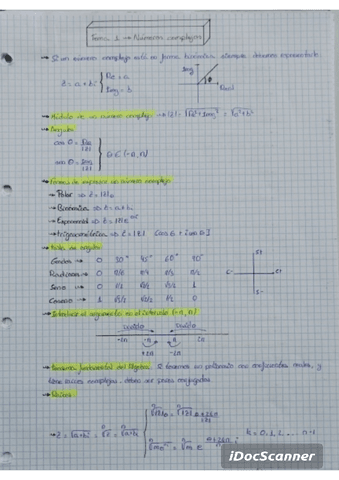 Tema 1 → Números complejos
→ Si un número complejo está en forma binómica siempre
z = a + bi { Re = a
Img = b
Img
θ
Real
→ Módulo de un número complejo → |z| = √(Re² + Img²) = √(a² + b²)
→ Ángulo
cos θ = Re/|z|
sen θ = Img/|z|
θ ∈ (-π, π)
→ Formas de expresar un número complejo
→ Polar ⇒ z = |z|θ
→ Binómica ⇒ z = a + bi
→ Exponencial ⇒ z = |z| e
→ Trigonométrica ⇒ z = |z| [cos θ + i sen θ]
→ Tabla de ángulos
Grados → 0 30° 45° 60° 90°
Radianes → 0 π/6 π/4 π/3 π/2
Seno → 0 1/2 √2/2 √3/2 1
Coseno → 1 √3/2 √2/2 1/2 0
S+
C- C+
S-
→ Introducir el argumento en el intervalo (-π, π)
-2π -π π 2π
+2π -2π
→ Teorema fundamental del Álgebra. Si tenemos un polinomio con coeficientes reales, y
tiene raíces complejas, deben ser pares conjugados
→ Raíces
k = 0, 1, 2, ... n-1
iDocScanner